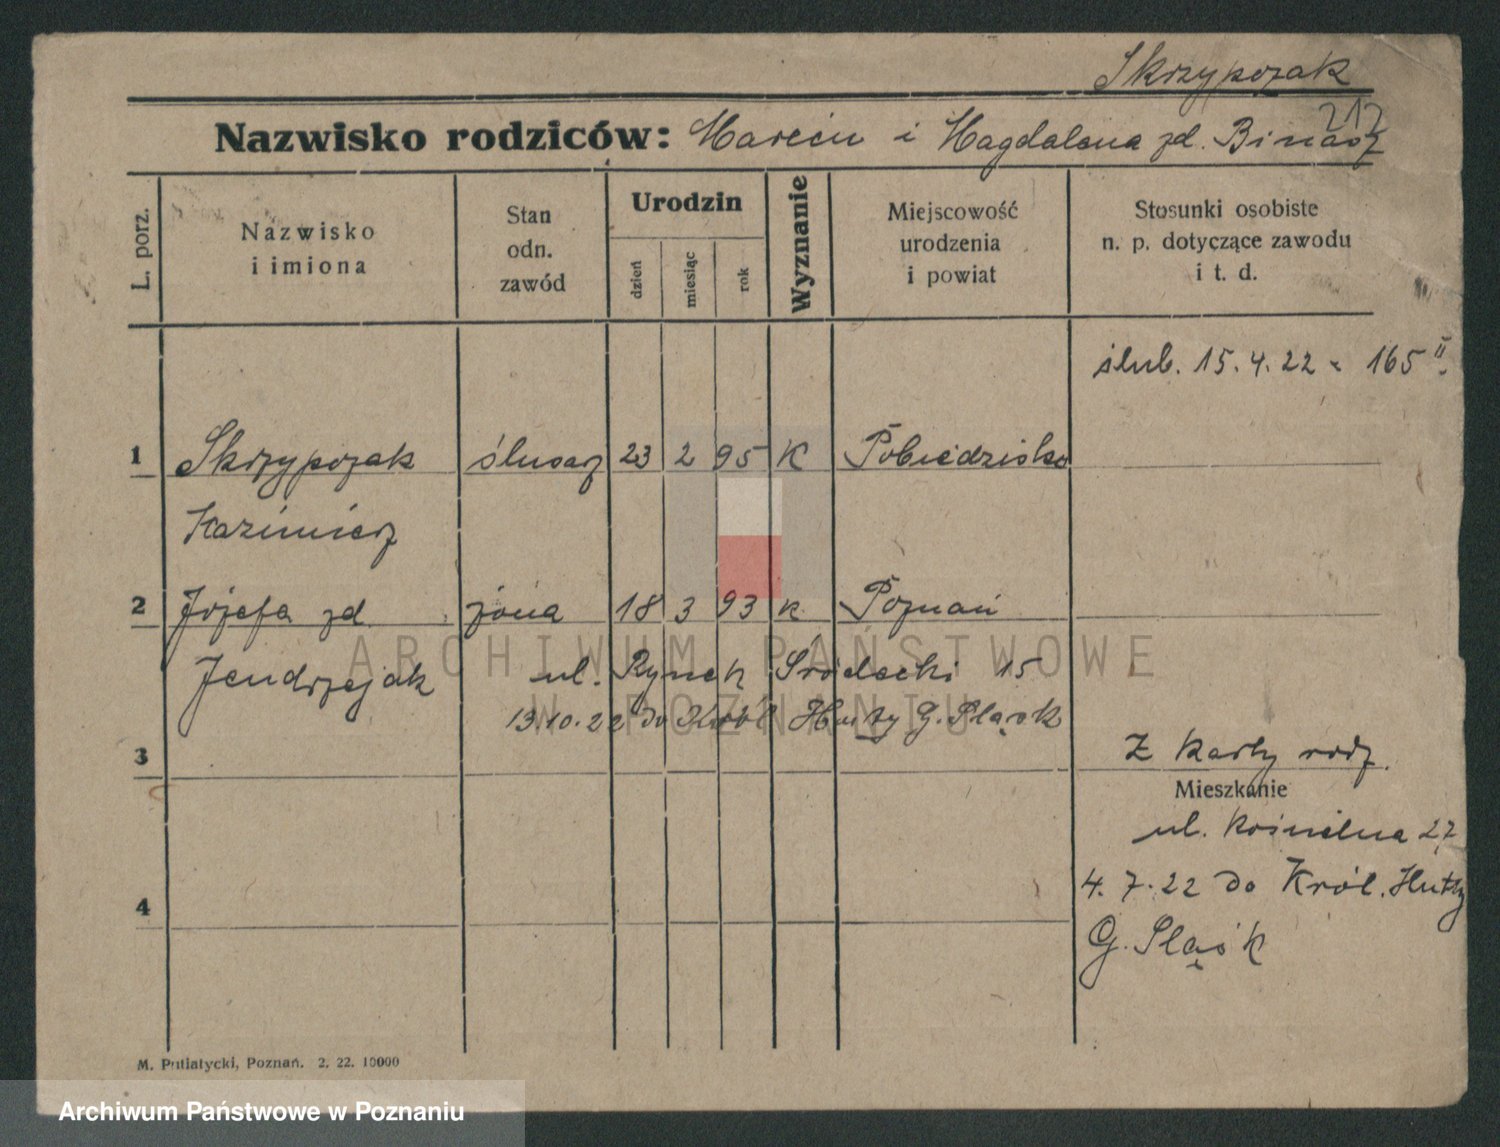 Skrzypczak
217
Nazwisko rodziców: Marcin i Magdalena zd. Binasz
L. porz.
Nazwisko
i imiona
Stan
odn.
zawód
Urodzin
dzień
miesiąc
rok
Wyznanie
Miejscowość
urodzenia
i powiat
Stosunki osobiste
n. p. dotyczące zawodu
i t. d.
ślub. 15.4.22 - 165 II.
1 Skrzypczak ślusarz 23 2 95 K Pobiedziska
Kazimierz
2 Józefa zd żona 18 3 93 k Poznań
Jendrzejak ul. Rynek Śródecki 15
13.10.22 do Król Huty G. Śląsk
3
Z karty rodz.
Mieszkanie
ul. Kośnielna 27
4.7.22 do Król. Huty
G. Śląsk
4
M. Putiatycki, Poznań. 2. 22. 10000
ARCHIWUM PAŃSTWOWE
W POZNANIU
Archiwum Państwowe w Poznaniu